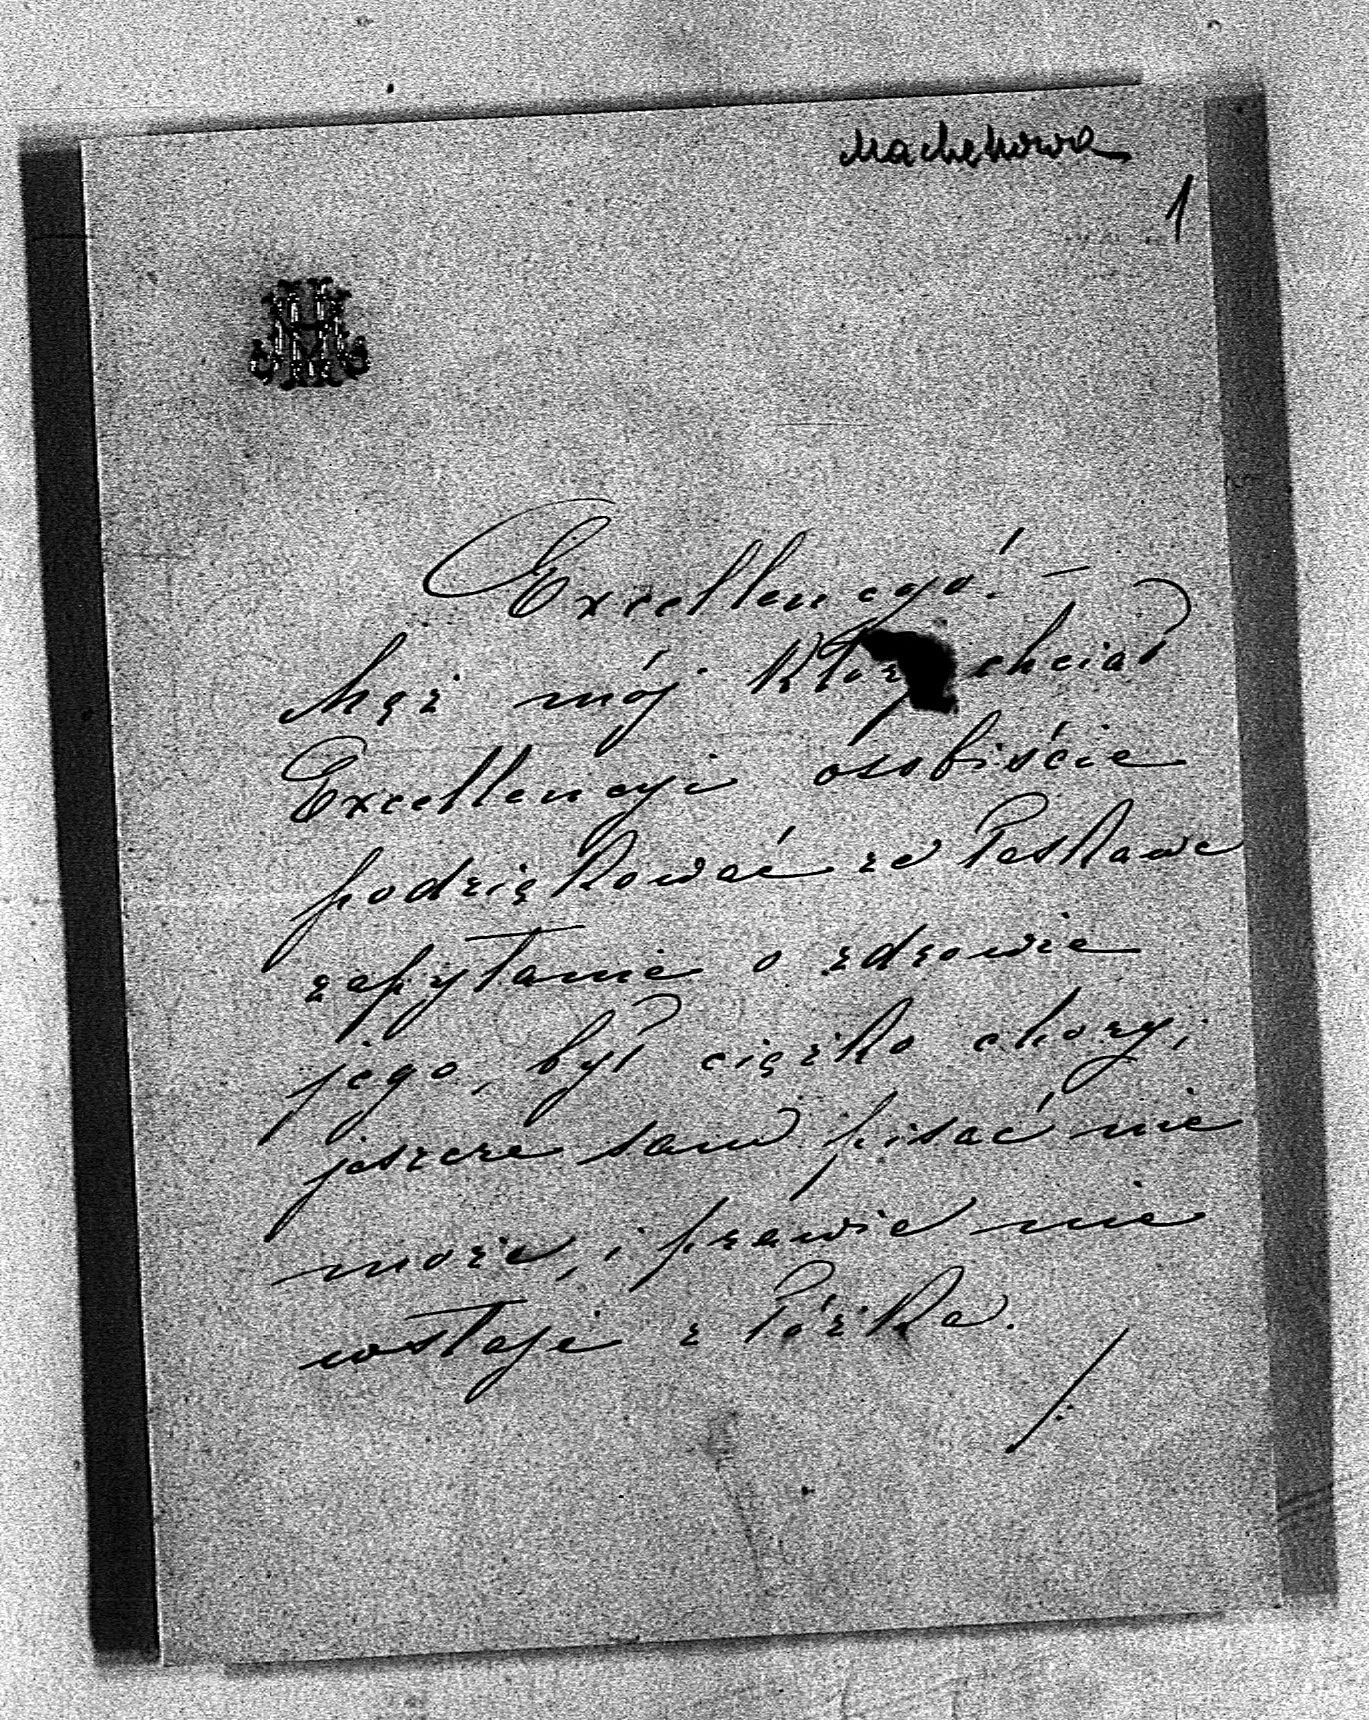 Machekowa
1
Excellencyo! —
Mąż mój który chciał
Excellencyi ossbiście
podziękować za łaskawe
zapytanie o zdrowie
jego, był ciężko chory;
jeszcze sam pisać nie
może, i prawie nie
wstaje z łóżka.